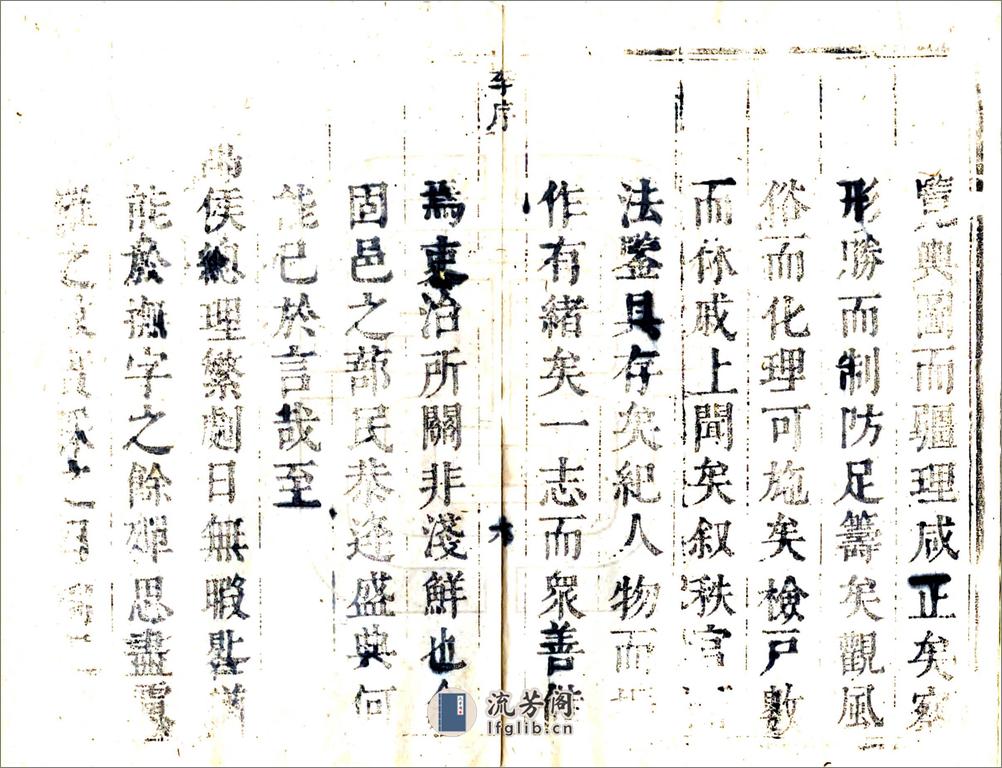 覽輿圖而疆理咸正矣察
形勝而制防足籌矣觀風
俗而化理可施矣檢戶數
而休戚上聞矣叙秩官
法鑒具存矣紀人物而
作有緒矣一志而眾善備
李序
六
為吏治所關非淺鮮也
固邑之部民恭逢盛典何
能已於言哉至
侯總理繁劇日無暇晷
能於撫字之餘殫思盡
之
流芳阁
lfglib.cn